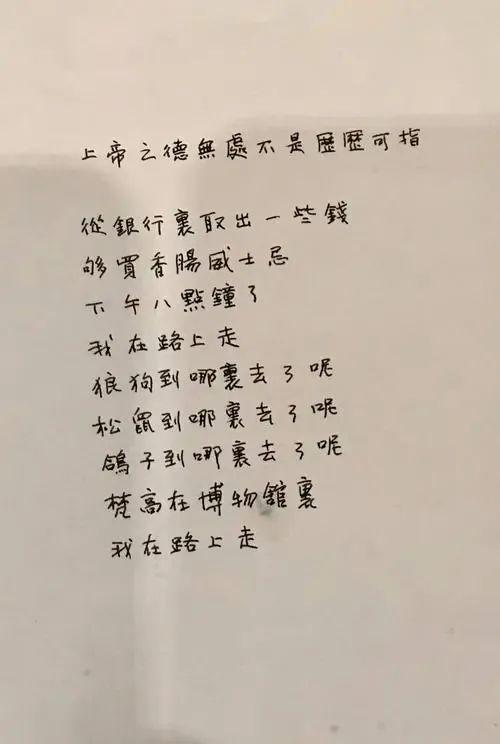 上帝之德無處不是歷歷可指
從銀行裏取出一些錢
够買香腸威士忌
下午八點鐘了
我在路上走
狼狗到哪裏去了呢
松鼠到哪裏去了呢
鴿子到哪裏去了呢
梵高在博物館裏
我在路上走